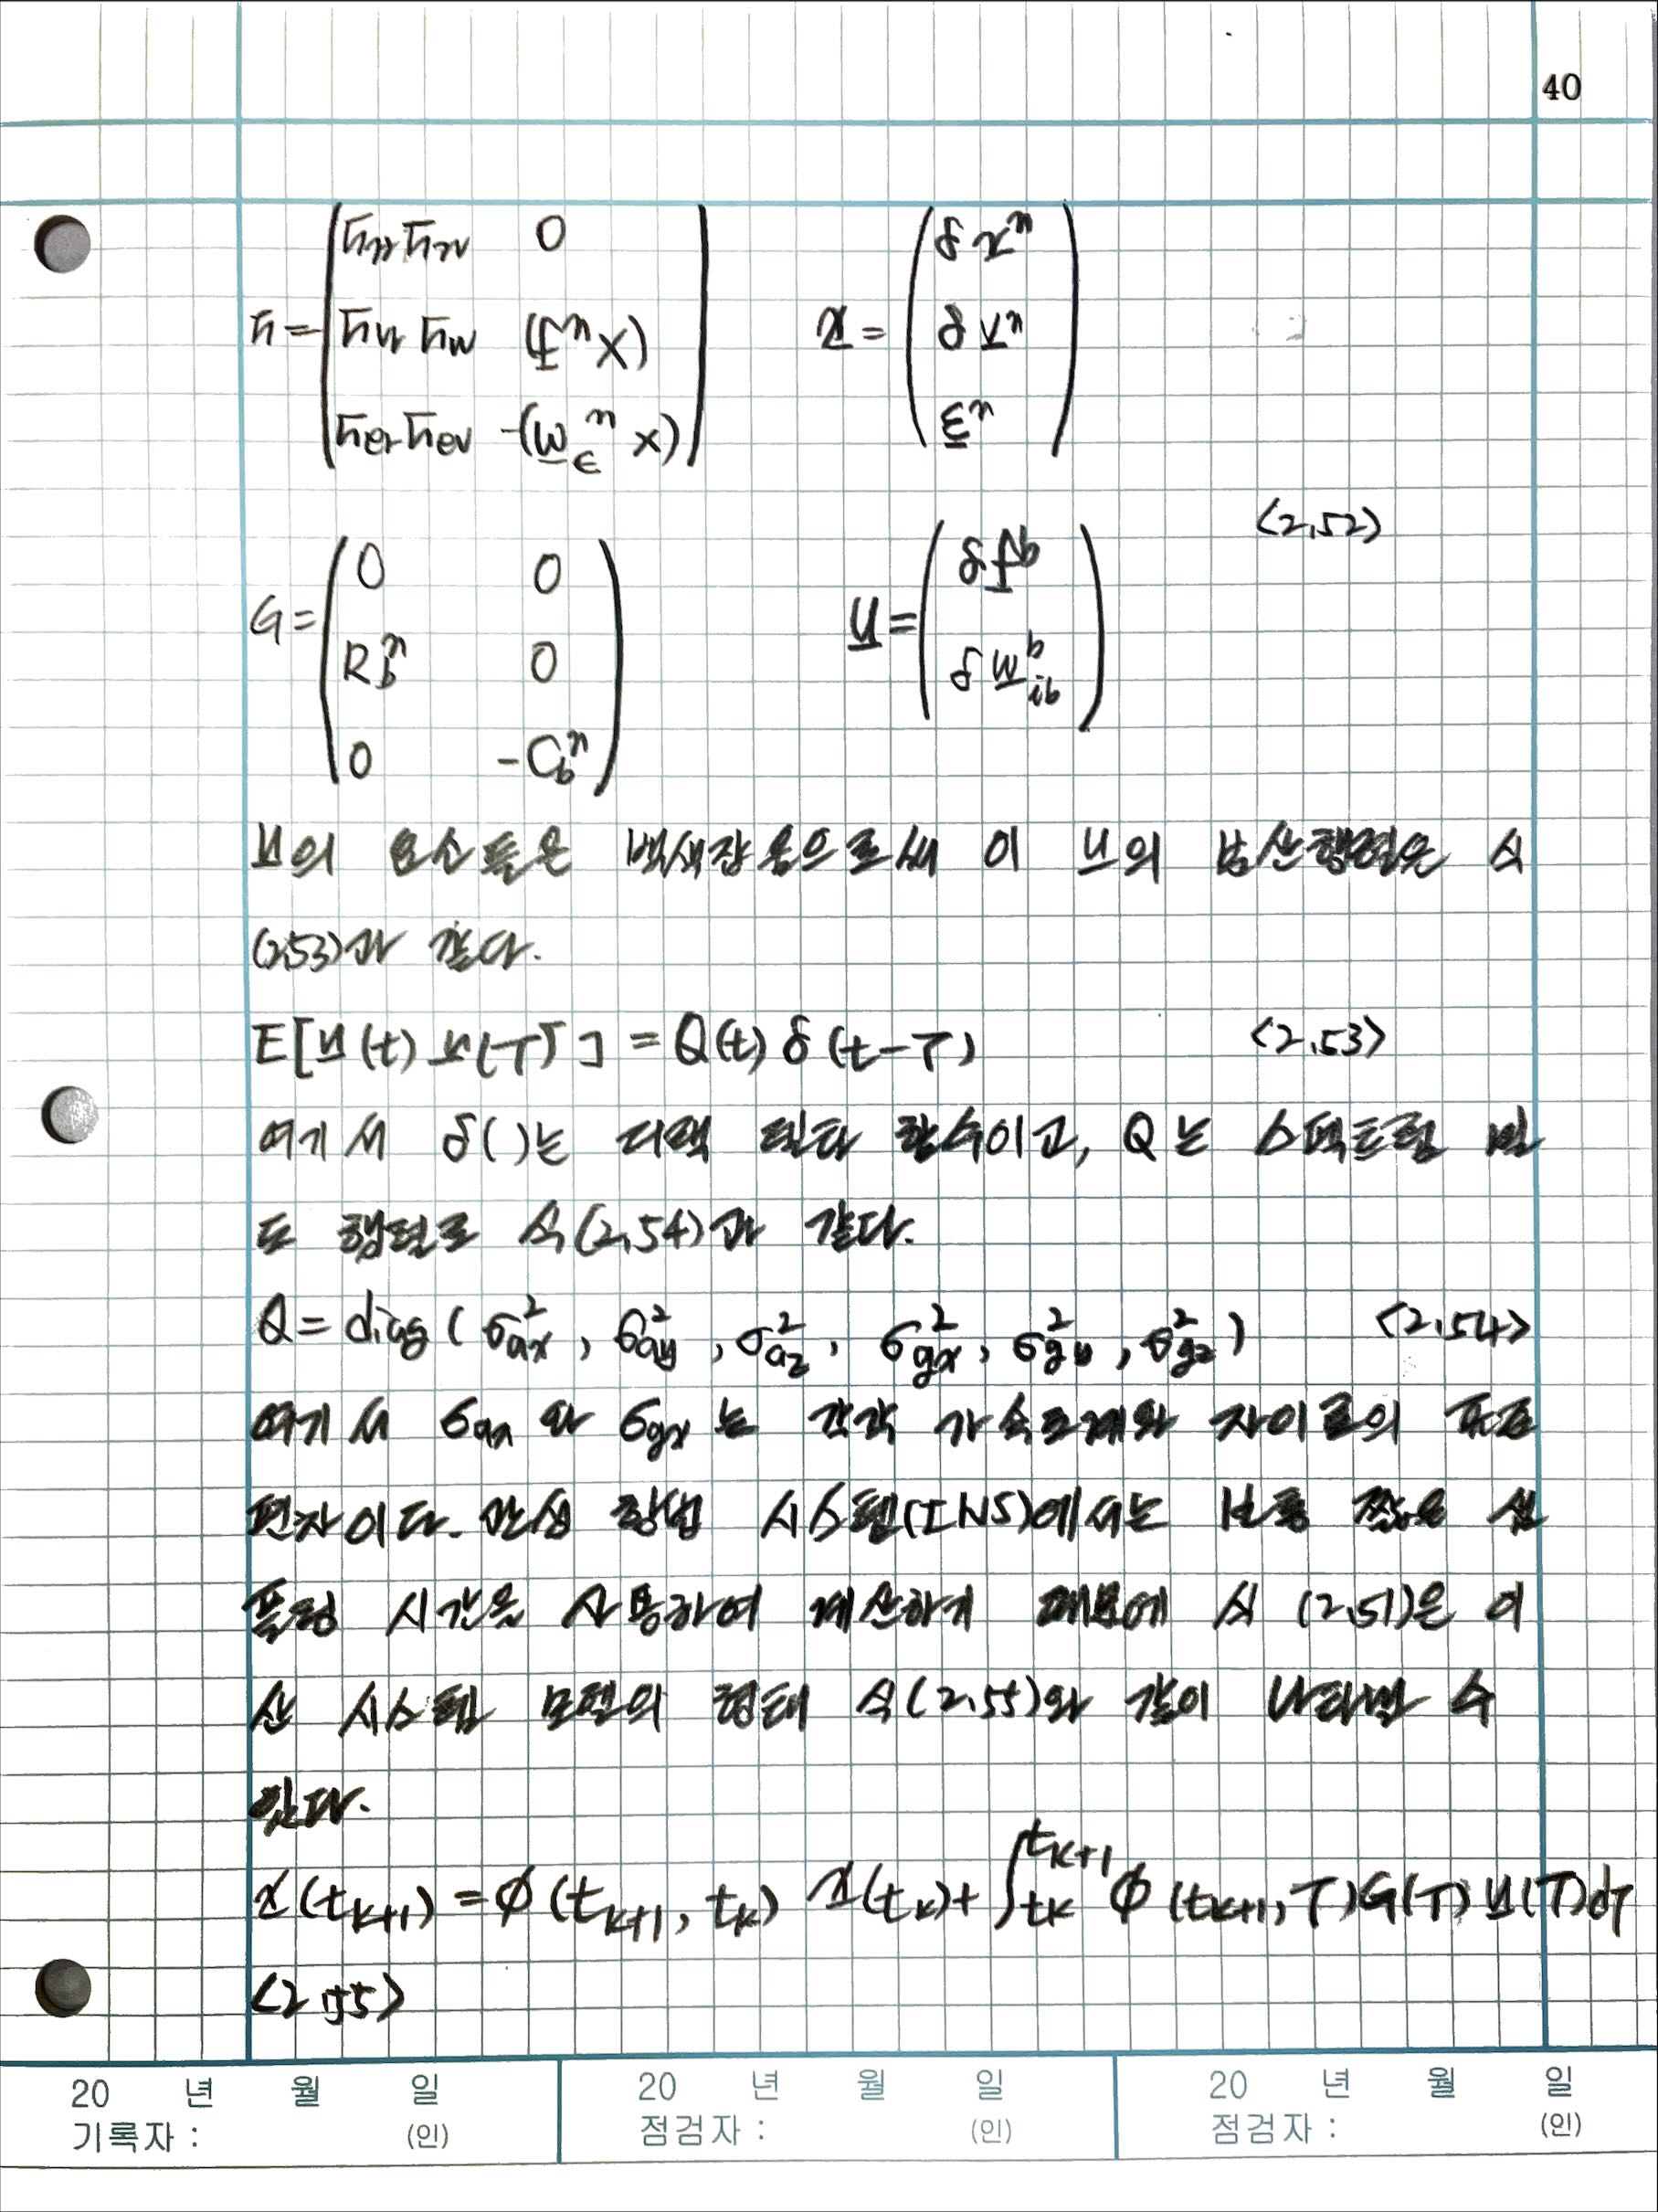 40
F = ( F_rr F_rv 0    x = ( δr^n
F_vr F_vv (f^n ×)    δv^n
F_er F_ev -(ω_ε^n ×) )    ε^n )
<2.52>
G = ( 0 0    u = ( δf^b
R_b^n 0    δω_ib^b )
0 -C_b^n )
u의 요소들은 백색잡음으로써 이 u의 분산행렬은 식
(2.53)과 같다.
E[u(t) u(τ)^T] = Q(t) δ(t-τ) <2.53>
여기서 δ()는 디랙 델타 함수이고, Q는 스펙트럼 밀
도 행렬로 식(2.54)과 같다.
Q = diag(σ²_ax, σ²_ay, σ²_az, σ²_gx, σ²_gy, σ²_gz) <2.54>
여기서 σ_ax 와 σ_gx 는 각각 가속도계와 자이로의 표준
편차이다. 관성 항법 시스템(INS)에서는 보통 짧은 샘
플링 시간을 사용하여 계산하기 때문에 식 (2.51)은 이
산 시스템 모델의 형태 식(2.55)와 같이 나타낼 수
있다.
x(t_k+1) = φ(t_k+1, t_k) x(t_k) + ∫_tk^tk+1 φ(t_k+1, τ)G(τ) u(τ)dτ
<2.55>
20 년 월 일 20 년 월 일 20 년 월 일
기록자 : (인) 점검자 : (인) 점검자 : (인)